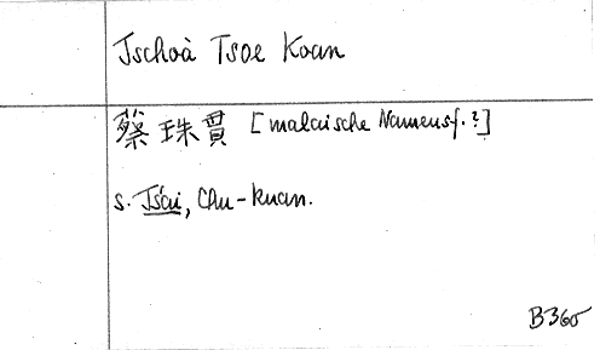 Tschoà Tsoe Koan
蔡珠貫 [malaische Namensf.?]
s. Ts'ai, Chu-kuan.
B360